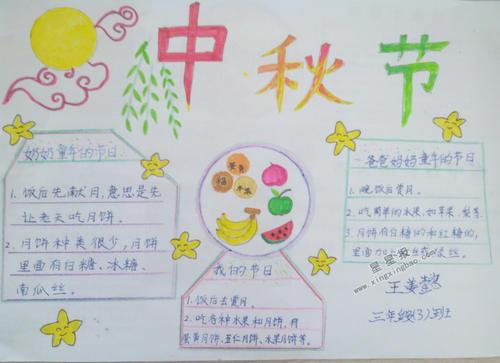 中秋节
奶奶童年的节日
1. 饭后先献月,意思是先
让老天吃月饼。
2. 月饼种类很少,月饼
里面有白糖、冰糖、
南瓜丝。
蛋黄
我的节日
1. 饭后去赏月。
2. 吃各种水果和月饼,有
蛋黄月饼、五仁月饼、水果月饼等。
爸爸妈妈童年的节日
1. 晚饭后赏月。
2. 吃简单的水果,如苹果、梨等
3. 月饼有白糖的和红糖的,
里面加上
星星报
www.xingxingbao.com
王姜
三年级(3)班